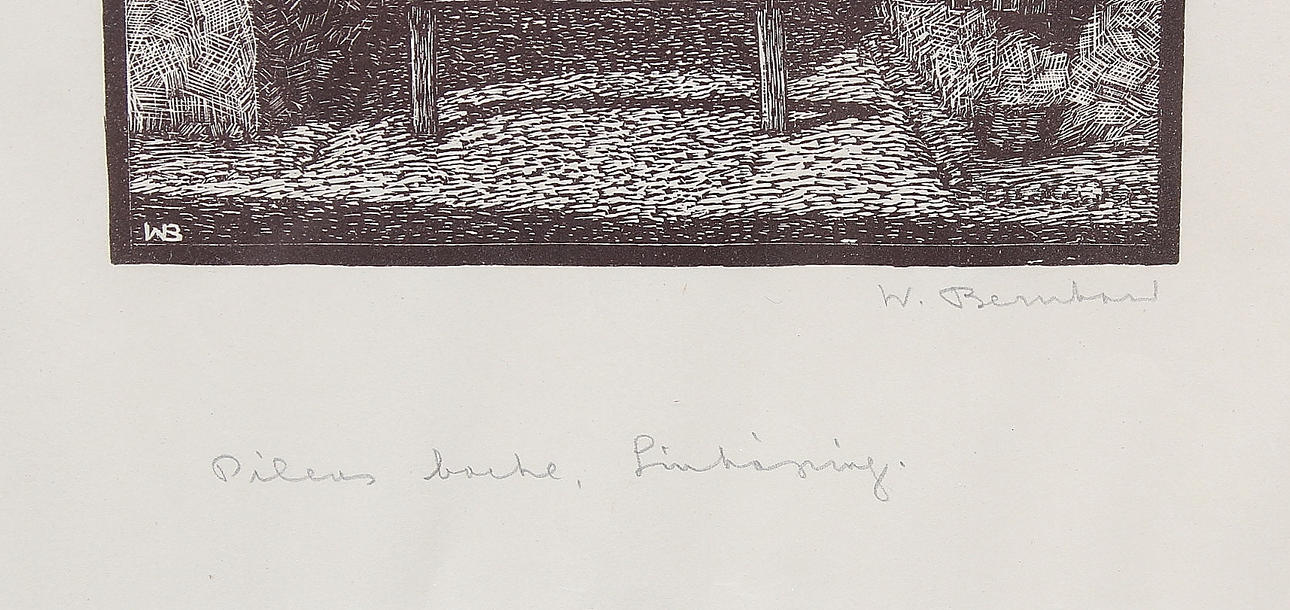 WB
W. Bernhard
backe, Linköping.